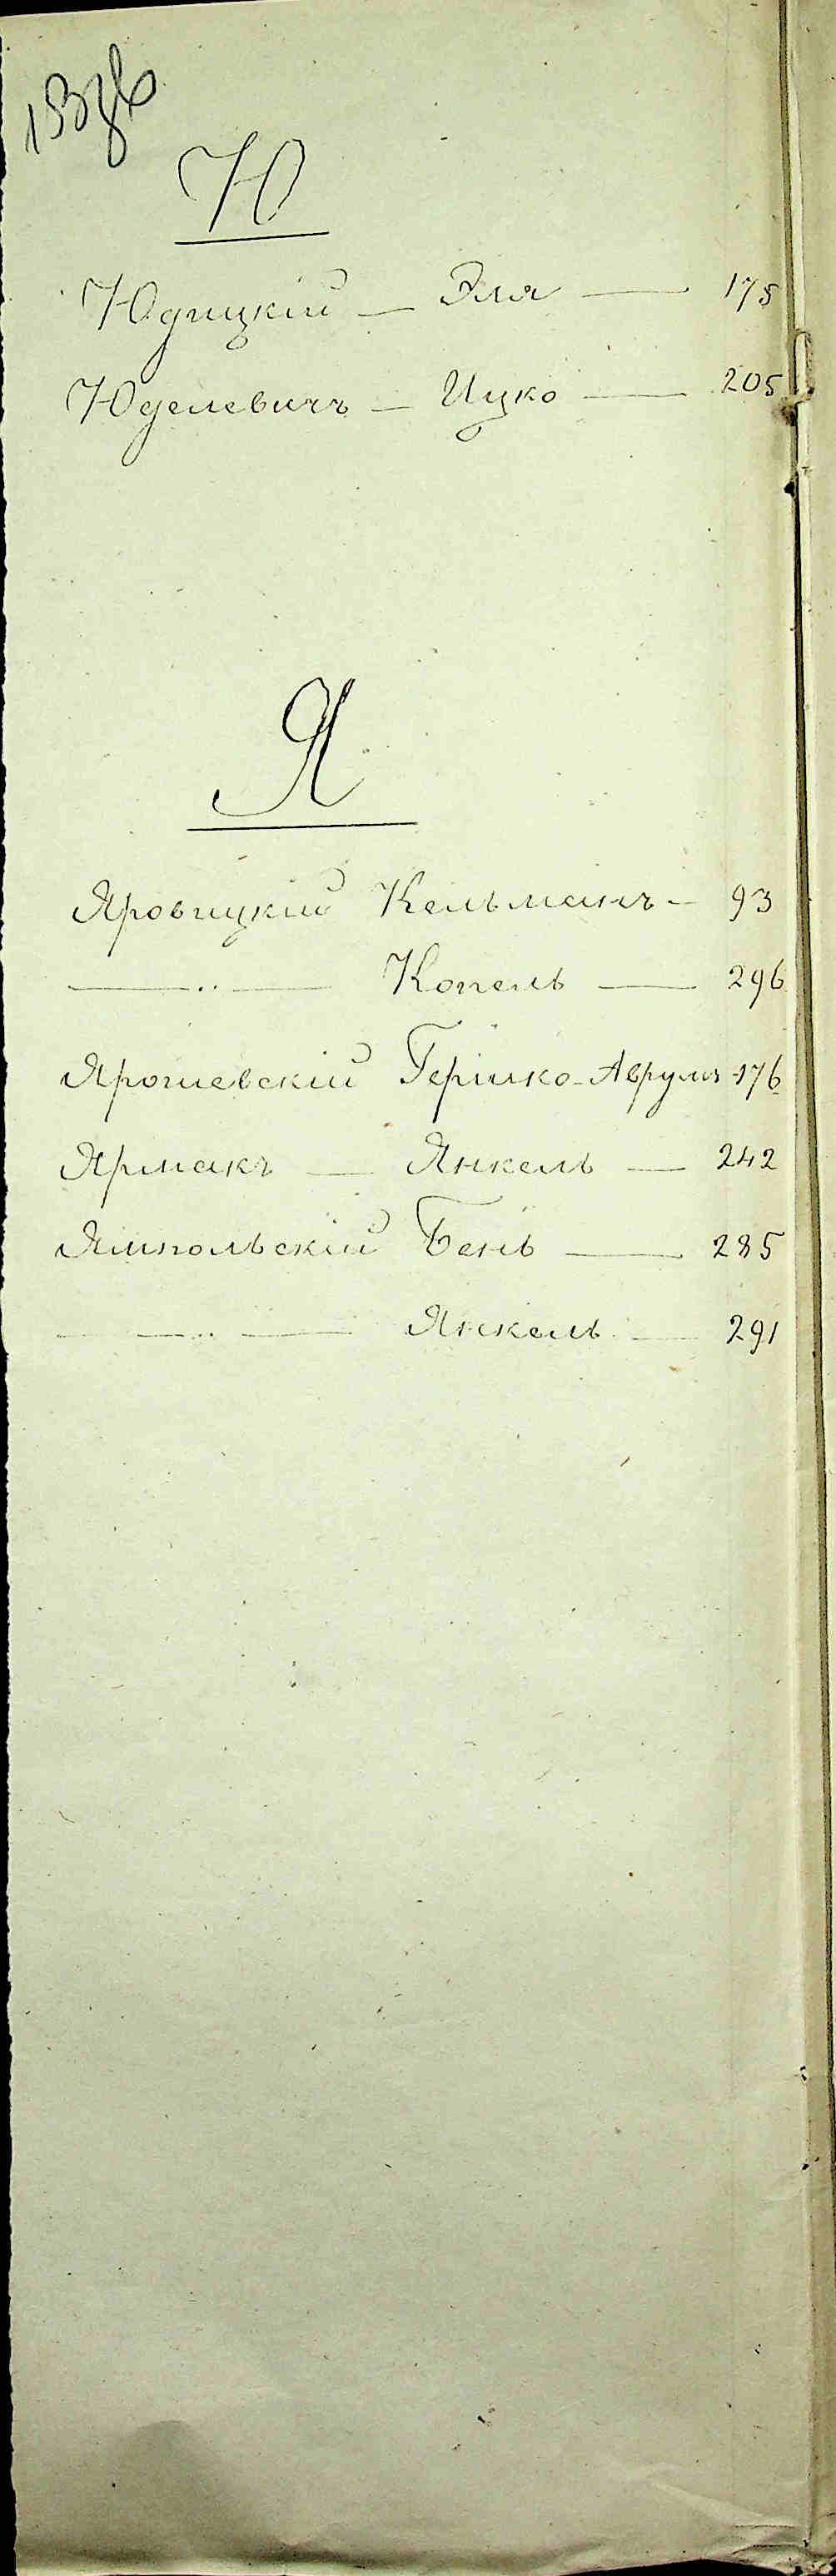 Ю
Юдицкій — Эля — 175
Юделевичъ — Ицко — 205
Я
Яровицкій Кельманъ — 93
—„— Копель — 296
Ярошевскій Гершко-Аврумъ - 176
Ярмакъ — Янкель — 242
Ямпольскій Бень — 285
—„— Янкель — 291